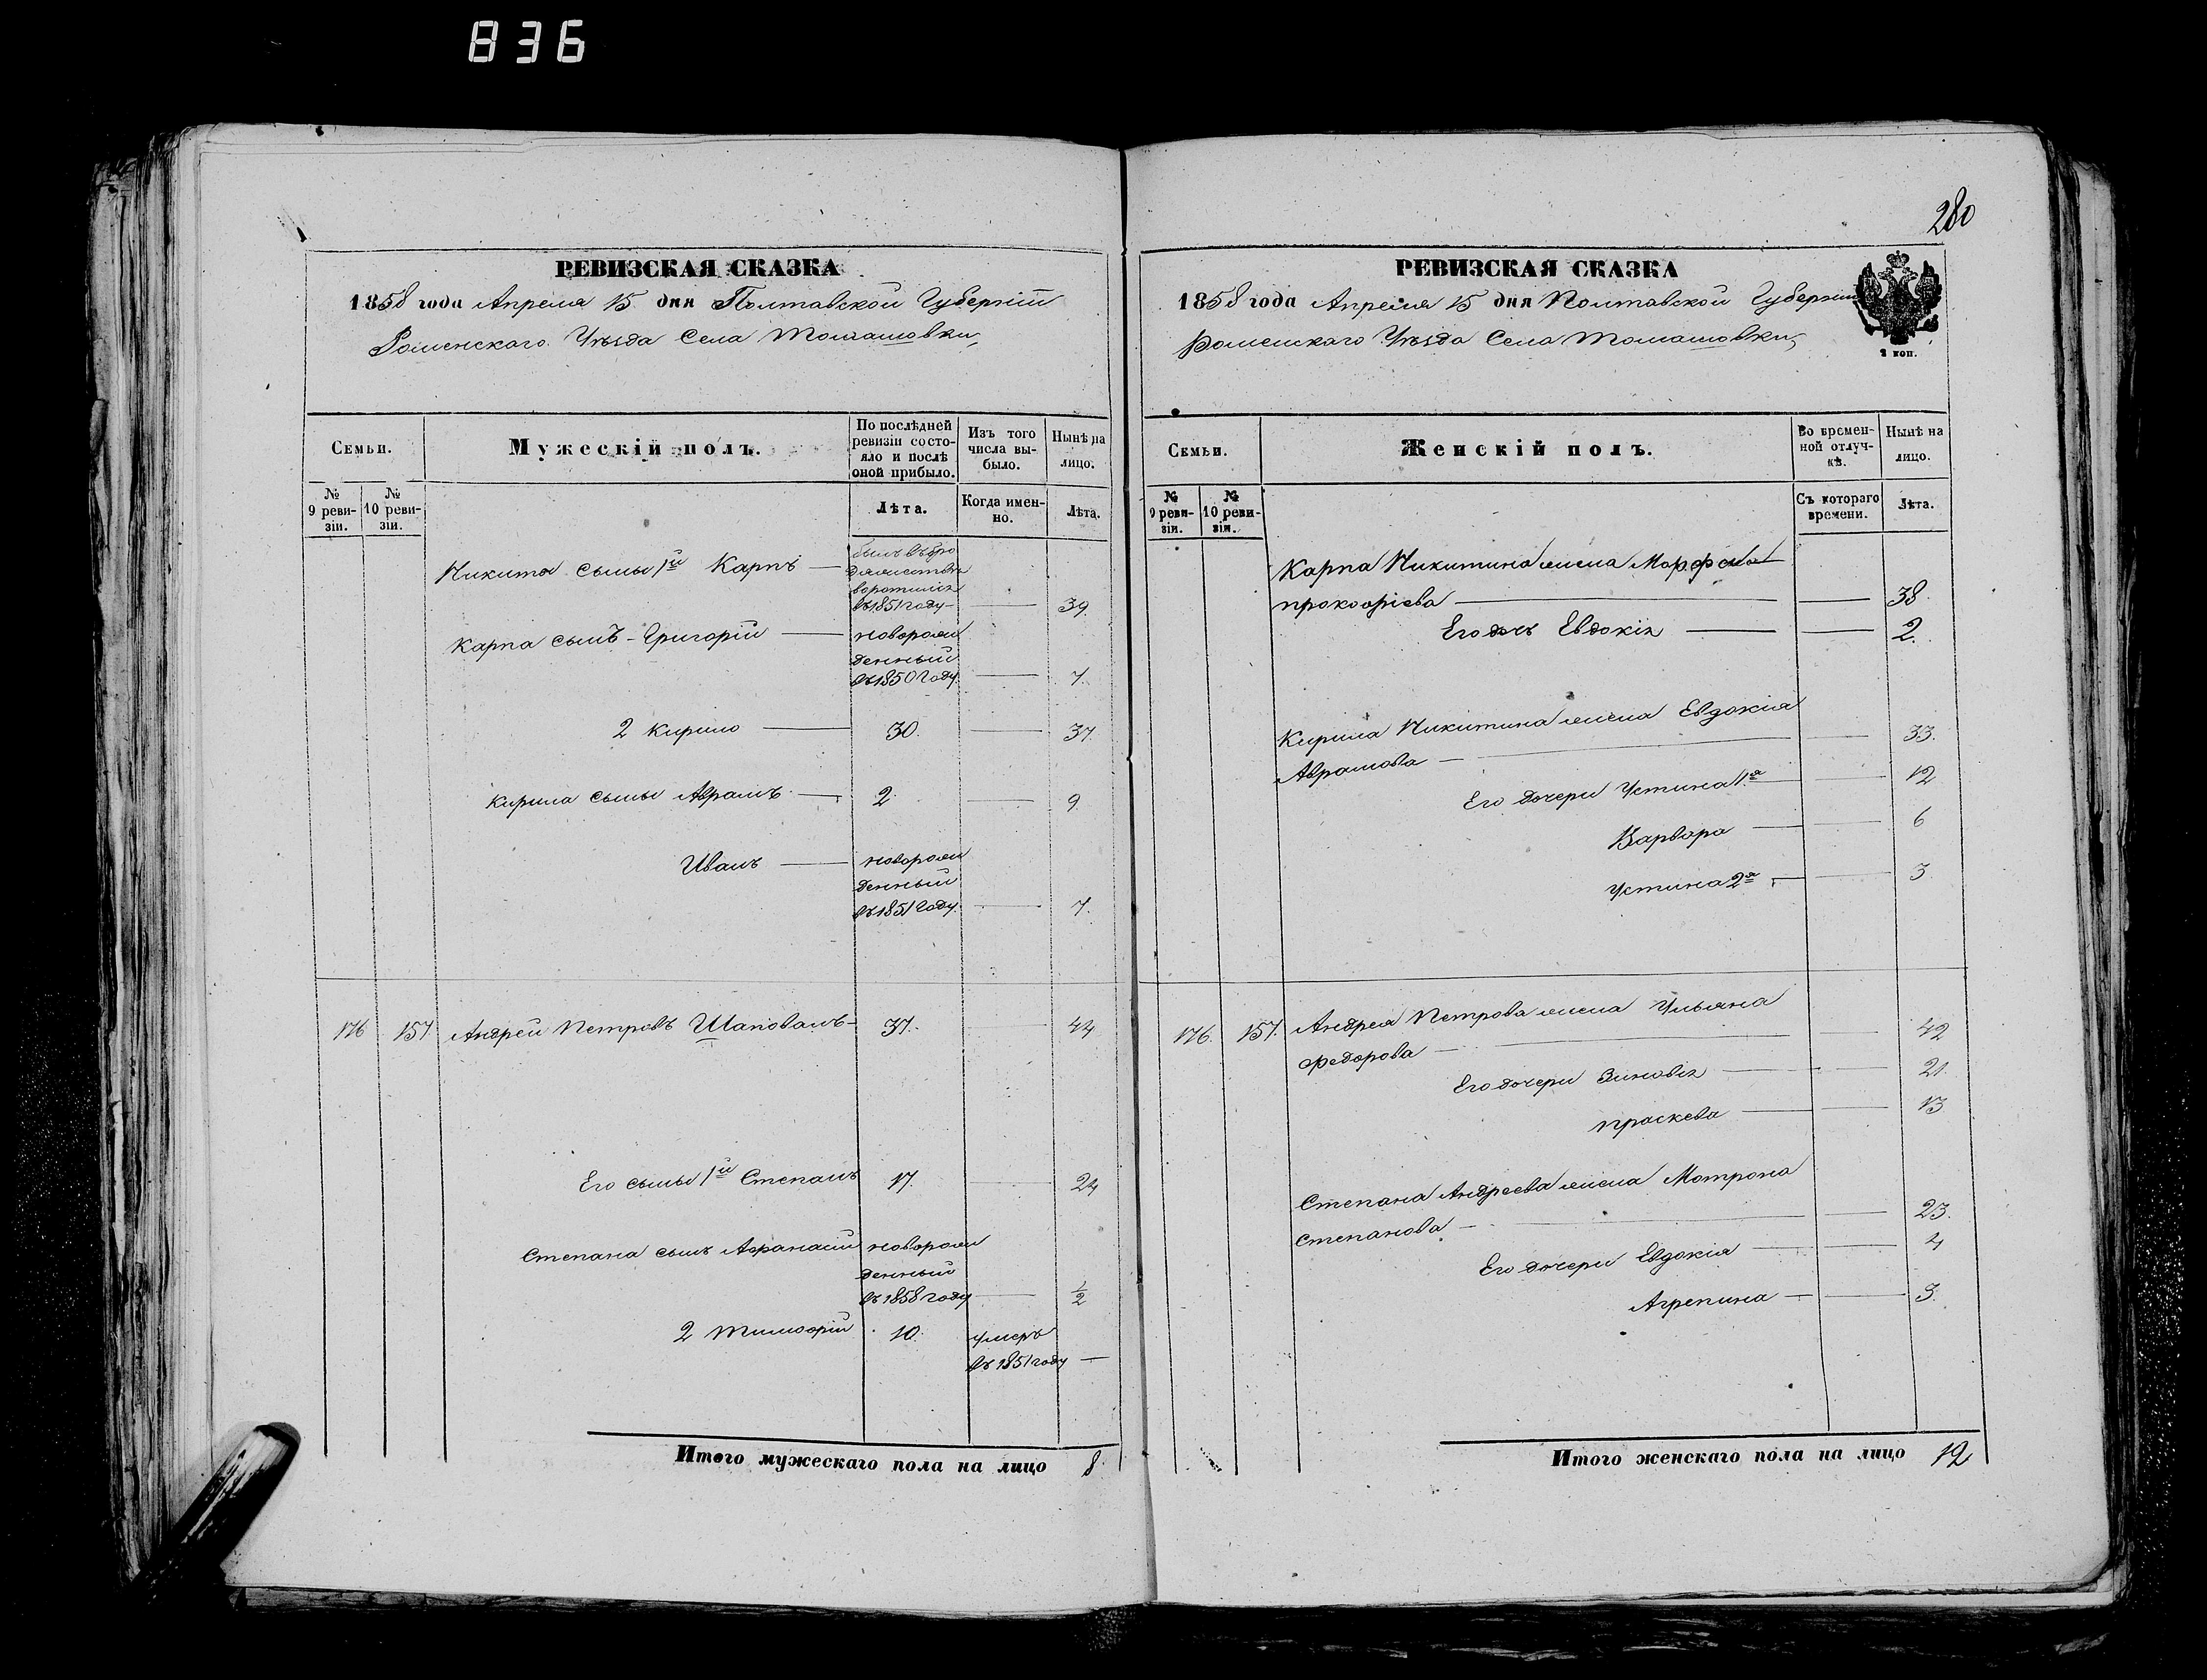 836
280
РЕВИЗСКАЯ СКАЗКА
1858 года Апреля 15 дня Полтавской Губерніи
Роменскаго Уѣзда Села Томашовки,
Семьи.
Мужескій полъ.
По послѣдней ревизіи состояло и послѣ оной прибыло.
Изъ того числа выбыло.
Нынѣ на лицо.
№ 9 ревизіи.
№ 10 ревизіи.
Лѣта.
Когда именно.
Лѣта.
Никиты сыны 1й Карпъ — былъ въ бродяжествѣ воротился въ 1851 году — 39
Карпа сынъ - Григорій — новорожденный въ 1850 Году — 7.
2 Кирило — 30. — 37
Кирила сыны Аврамъ — 2 — 9
Иванъ — новорожденный въ 1851 Году — 7.
176 157 Андрей Петровъ Шаповалъ - 37. — 44
Его сыны 1й Степанъ 17. — 24
Степана сынъ Афанасій новорожденный въ 1858 году — 1/2
2 Тимофій 10. умеръ въ 1851 году —
Итого мужескаго пола на лицо 8.
РЕВИЗСКАЯ СКАЗКА
1858 года Апреля 15 дня Полтавской Губерніи
Роменскаго Уѣзда Села Томашовки,
2 коп.
Семьи.
Женскій полъ.
Во временной отлучкѣ.
Нынѣ на лицо.
№ 9 ревизіи.
№ 10 ревизіи.
Съ котораго времени.
Лѣта.
Карпа Никитина жена Марфа
Прокофіева — 38
Его дочь Евдокія — 2.
Кирила Никитина жена Евдокія
Аврамова — 33.
Его дочери Устина 1я — 12
Варвара — 6
Устина 2я — 3
176. 157. Андрея Петрова жена Ульяна
Федорова — 42
Его дочери Зиновія — 21.
Праскева — 13
Степана Андреева жена Мотрона
Степанова — 23.
Его дочери Евдокія — 4
Агрепина — 3.
Итого женскаго пола на лицо 12